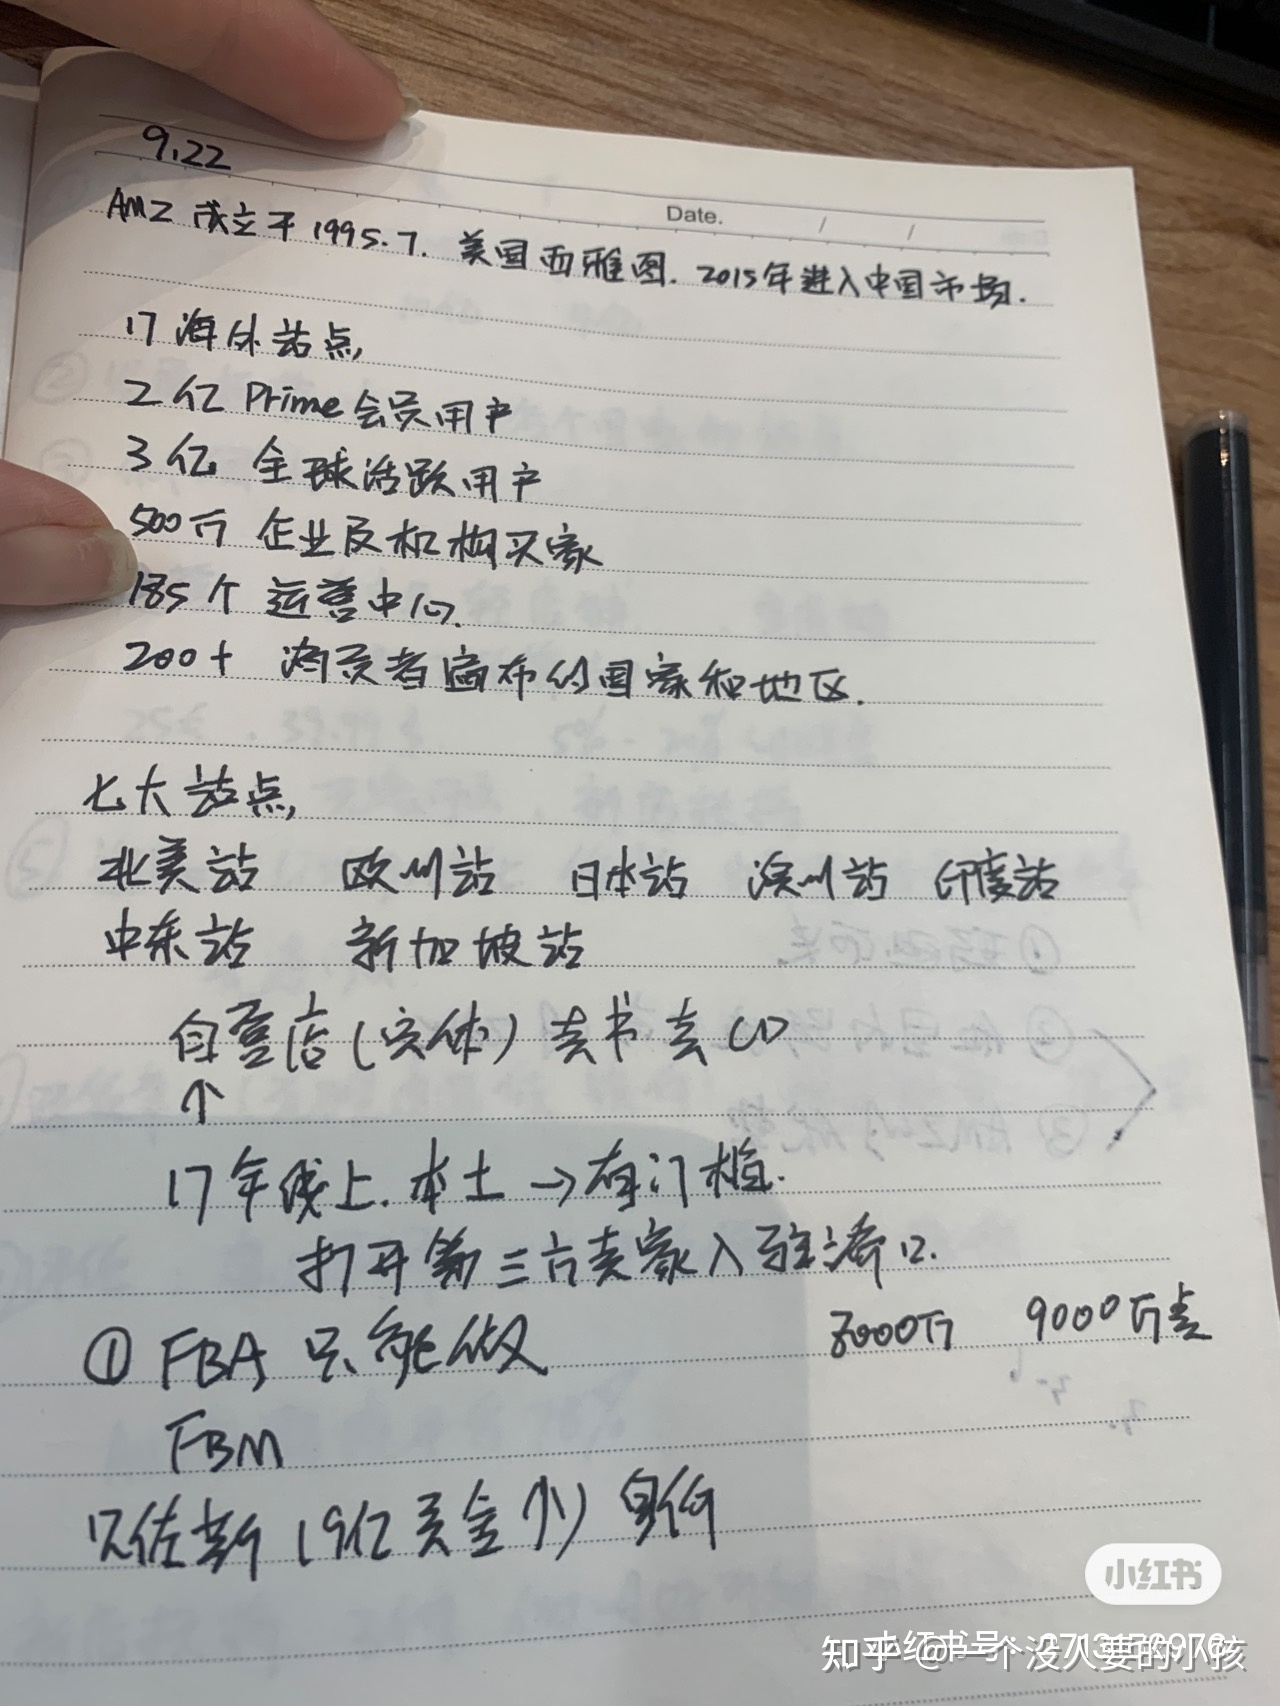 9.22
Date. / /
AMZ 成立于1995.7. 美国西雅图. 2015年进入中国市场.
17 海外站点,
2亿 Prime会员用户
3亿 全球活跃用户
500万 企业及机构买家
185个 运营中心.
200+ 消费者遍布的国家和地区.
七大站点,
北美站 欧洲站 日本站 澳洲站 印度站
中东站 新加坡站
自营店(实体) 卖书卖CD
↑
17年线上.本土→有门槛.
打开第三方卖家入驻港口.
8000万 9000万卖
① FBA 只能做
FBM
贝佐斯 (9亿美金个) 身价
小红书
小红书号:
知乎 @一个没人要的小孩